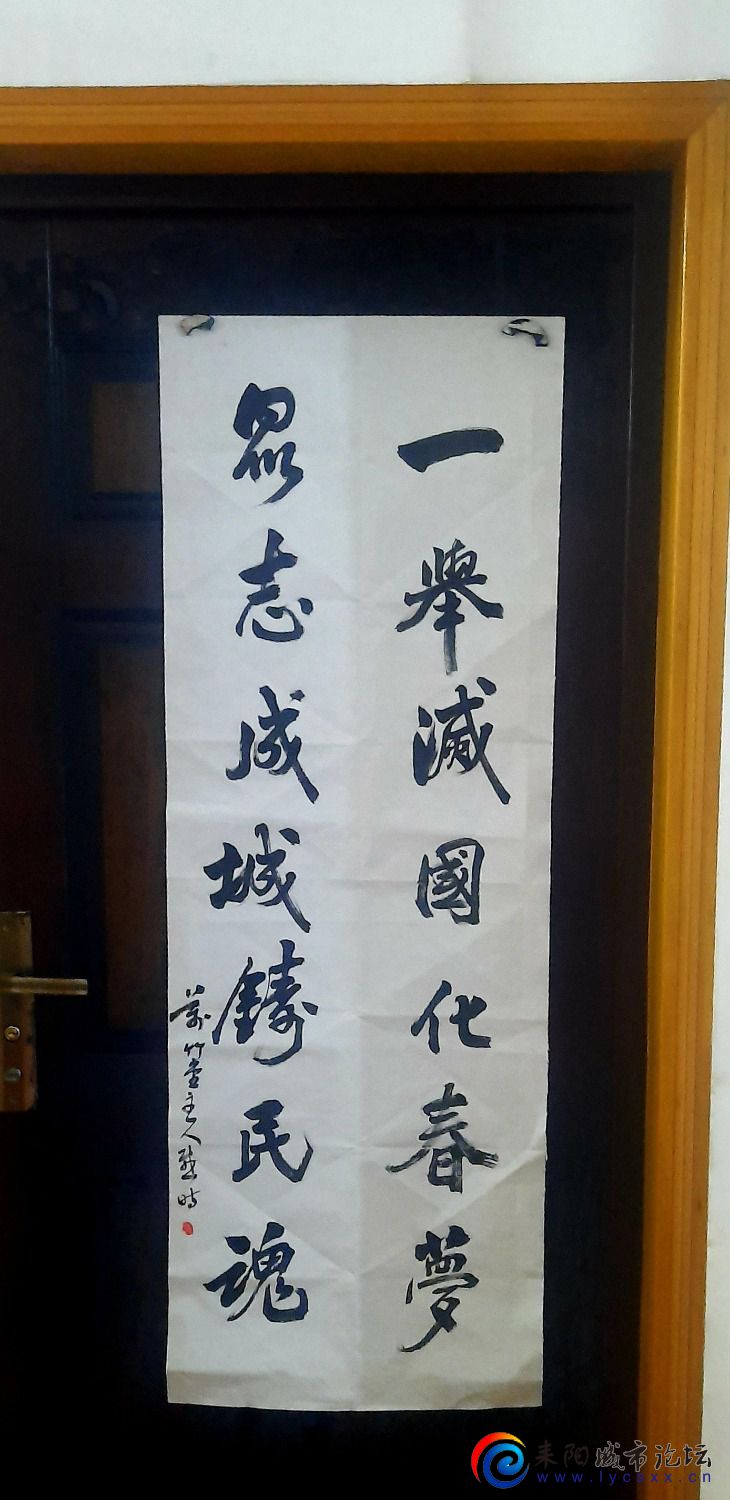 一舉滅國化春夢
眾志成城鑄民魂
萬竹堂主人
耒阳城市论坛
www.lycsxx.cn